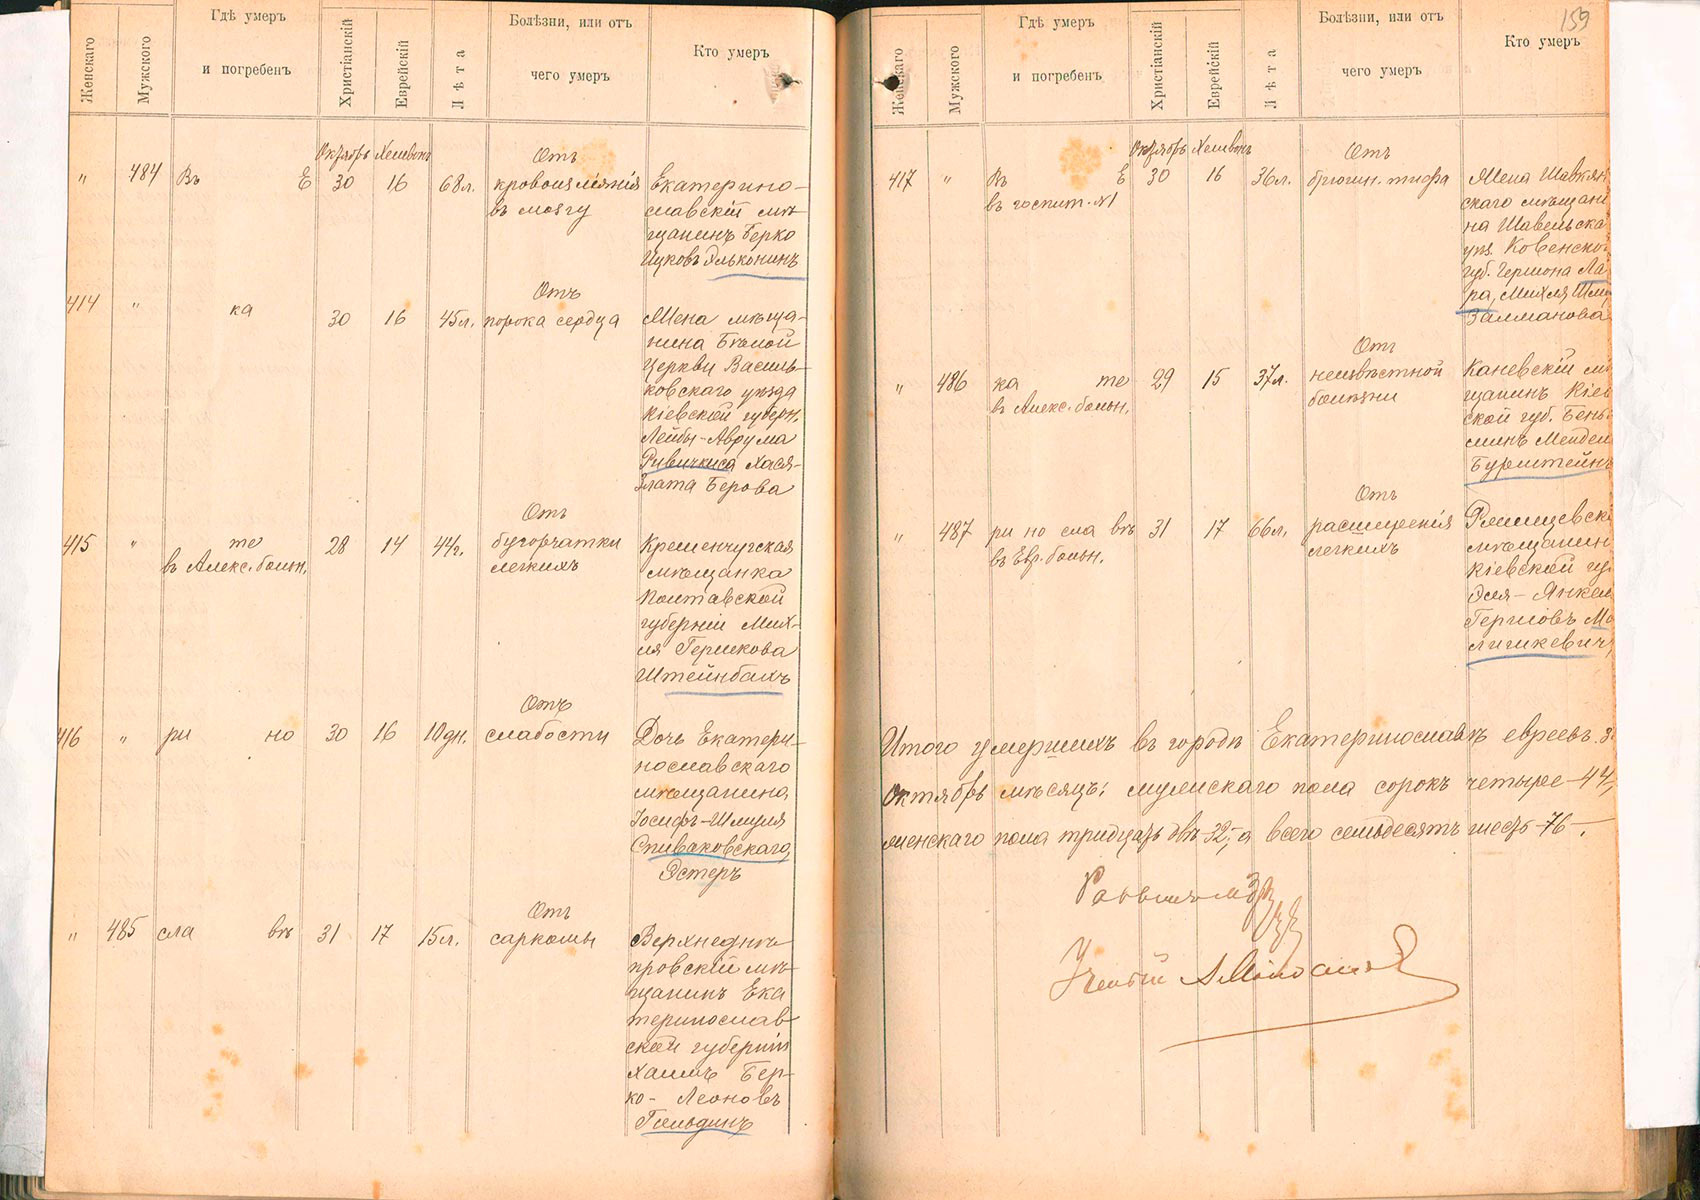 Женскаго
Мужского
Гдѣ умеръ
и погребенъ
Христіанскій
Еврейскій
Лѣта
Болѣзни, или отъ
чего умеръ
Кто умеръ
Октябрь Хешвонъ
" 484 Въ Е 30 16 68 л.
Отъ
кровоизліянія
въ мозгу
Екатерино-
славскій мѣ-
щанинъ Берко
Ицковъ Эльконинъ
414 " ка 30 16 45 л.
Отъ
порока сердца
Жена мѣща-
нина Бѣлой
Церкви Василь-
ковскаго уѣзда
Кіевской губерн.
Лейбы-Аврума
Ривичкиса Хася-
Злата Берова
415 " те 28 14 44 г.
въ Алекс. больн.
Отъ
бугорчатки
легкихъ
Кременчугская
мѣщанка
Полтавской
губерніи Мих-
ля Гершкова
Штейнбахъ
416 " ри но 30 16 10 дн.
Отъ
слабости
Дочь Екатери-
нославскаго
мѣщанина
Іосифъ-Шмуля
Спиваковскаго,
Эстеръ
" 485 сла вѣ 31 17 15 л.
Отъ
саркомы
Верхнеднѣ-
провскій мѣ-
щанинъ Ека
теринослав
ской губерніи
Хаимъ Бер-
ко-Леоновъ
Гольдинъ
159
Женскаго
Мужского
Гдѣ умеръ
и погребенъ
Христіанскій
Еврейскій
Лѣта
Болѣзни, или отъ
чего умеръ
Кто умеръ
Октябрь Хешвонъ
417 " Въ Е 30 16 36 л.
въ госпит.
Отъ
брюшн. тифа
Жена Шавлян
скаго мѣщани
на Шавельска
уѣз. Ковенско
губ. Гершона Ла
ра, Михля
Залманова
" 486 ка те 29 15 37 л.
въ Алекс. больн.
Отъ
неизвѣстной
болѣзни
Каневскій мѣ
щанинъ Кіев
ской губ. Бень
минъ Мендел
Бурштейнъ
" 487 ри но сла вѣ 31 17 66 л.
въ Евр. больн.
Отъ
расширенія
легкихъ
Ржищевскі
мѣщанин
Кіевской гу
Эля-Янкел
Гершовъ Мо
лишкевичъ
Итого умершихъ въ городѣ Екатеринославѣ евреевъ за
Октябрь мѣсяцъ: мужскаго пола сорокъ четыре-44,
женскаго пола тридцать двѣ-32,-а всего семьдесятъ шесть-76-.
Раввинъ
Ученый